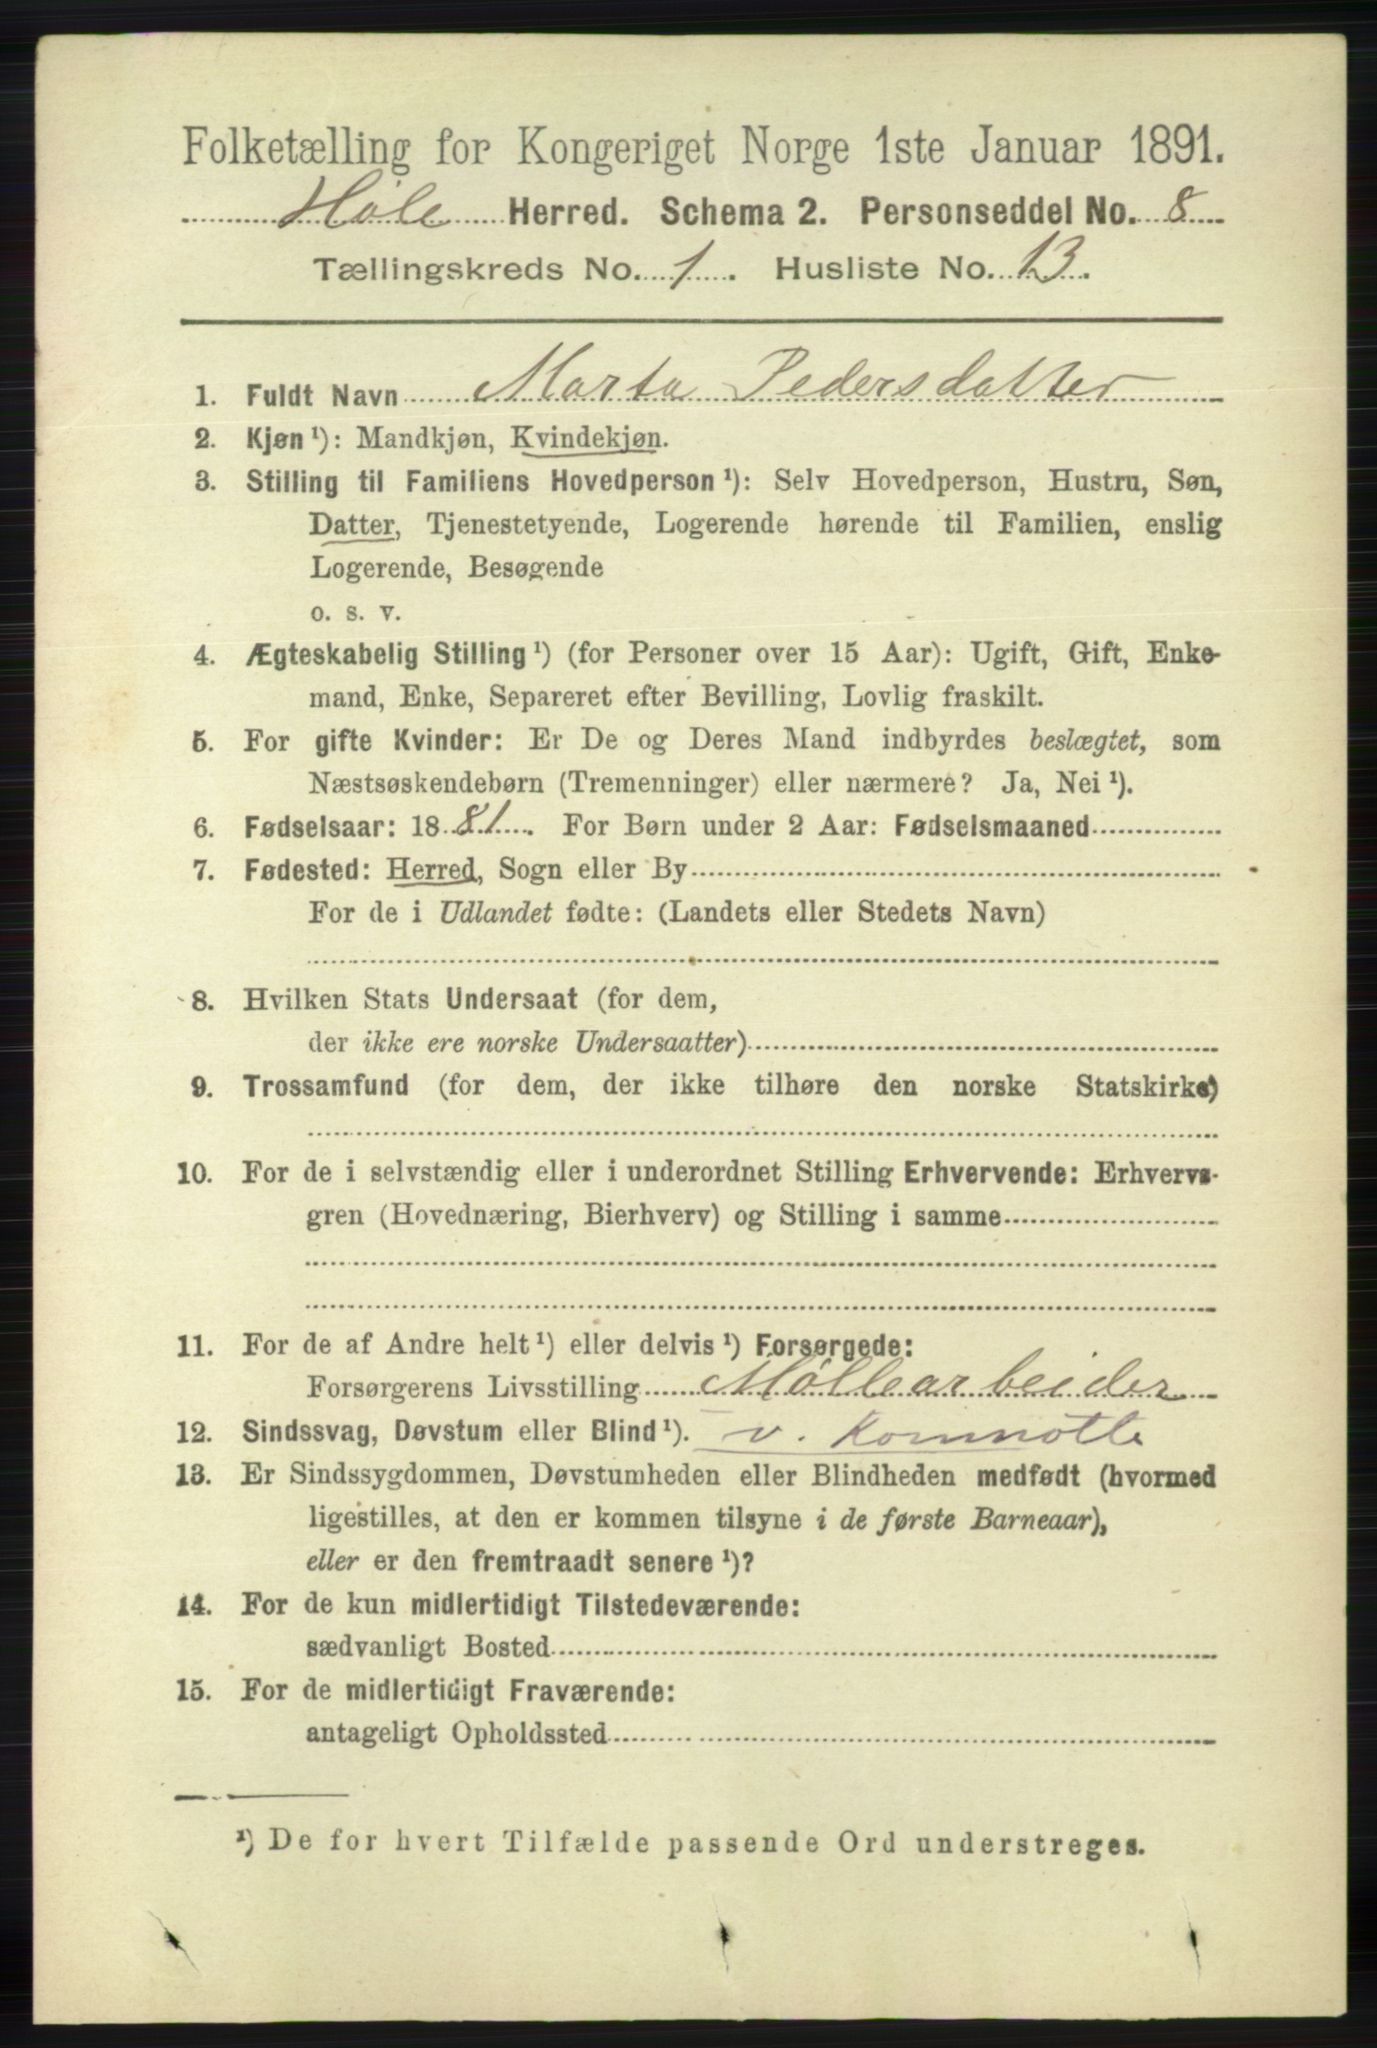 Folketælling for Kongeriget Norge 1ste Januar 1891.
Høle Herred. Schema 2. Personseddel No. 8
Tællingskreds No. 1. Husliste No. 13.
1. Fuldt Navn Marta Pedersdatter
2. Kjøn ¹): Mandkjøn, Kvindekjøn.
3. Stilling til Familiens Hovedperson ¹): Selv Hovedperson, Hustru, Søn,
Datter, Tjenestetyende, Logerende hørende til Familien, enslig
Logerende, Besøgende
o. s. v.
4. Ægteskabelig Stilling ¹) (for Personer over 15 Aar): Ugift, Gift, Enke-
mand, Enke, Separeret efter Bevilling, Lovlig fraskilt.
5. For gifte Kvinder: Er De og Deres Mand indbyrdes beslægtet, som
Næstsøskendebørn (Tremenninger) eller nærmere? Ja, Nei ¹).
6. Fødselsaar: 1881. For Børn under 2 Aar: Fødselsmaaned
7. Fødested: Herred, Sogn eller By
For de i Udlandet fødte: (Landets eller Stedets Navn)
8. Hvilken Stats Undersaat (for dem,
der ikke ere norske Undersaatter)
9. Trossamfund (for dem, der ikke tilhøre den norske Statskirke)
10. For de i selvstændig eller i underordnet Stilling Erhvervende: Erhvervs-
gren (Hovednæring, Bierhverv) og Stilling i samme
11. For de af Andre helt ¹) eller delvis ¹) Forsørgede:
Forsørgerens Livsstilling Møllearbeider
12. Sindssvag, Døvstum eller Blind ¹). v. Kornmølle
13. Er Sindssygdommen, Døvstumheden eller Blindheden medfødt (hvormed
ligestilles, at den er kommen tilsyne i de første Barneaar),
eller er den fremtraadt senere ¹)?
14. For de kun midlertidigt Tilstedeværende:
sædvanligt Bosted
15. For de midlertidigt Fraværende:
antageligt Opholdssted
¹) De for hvert Tilfælde passende Ord understreges.